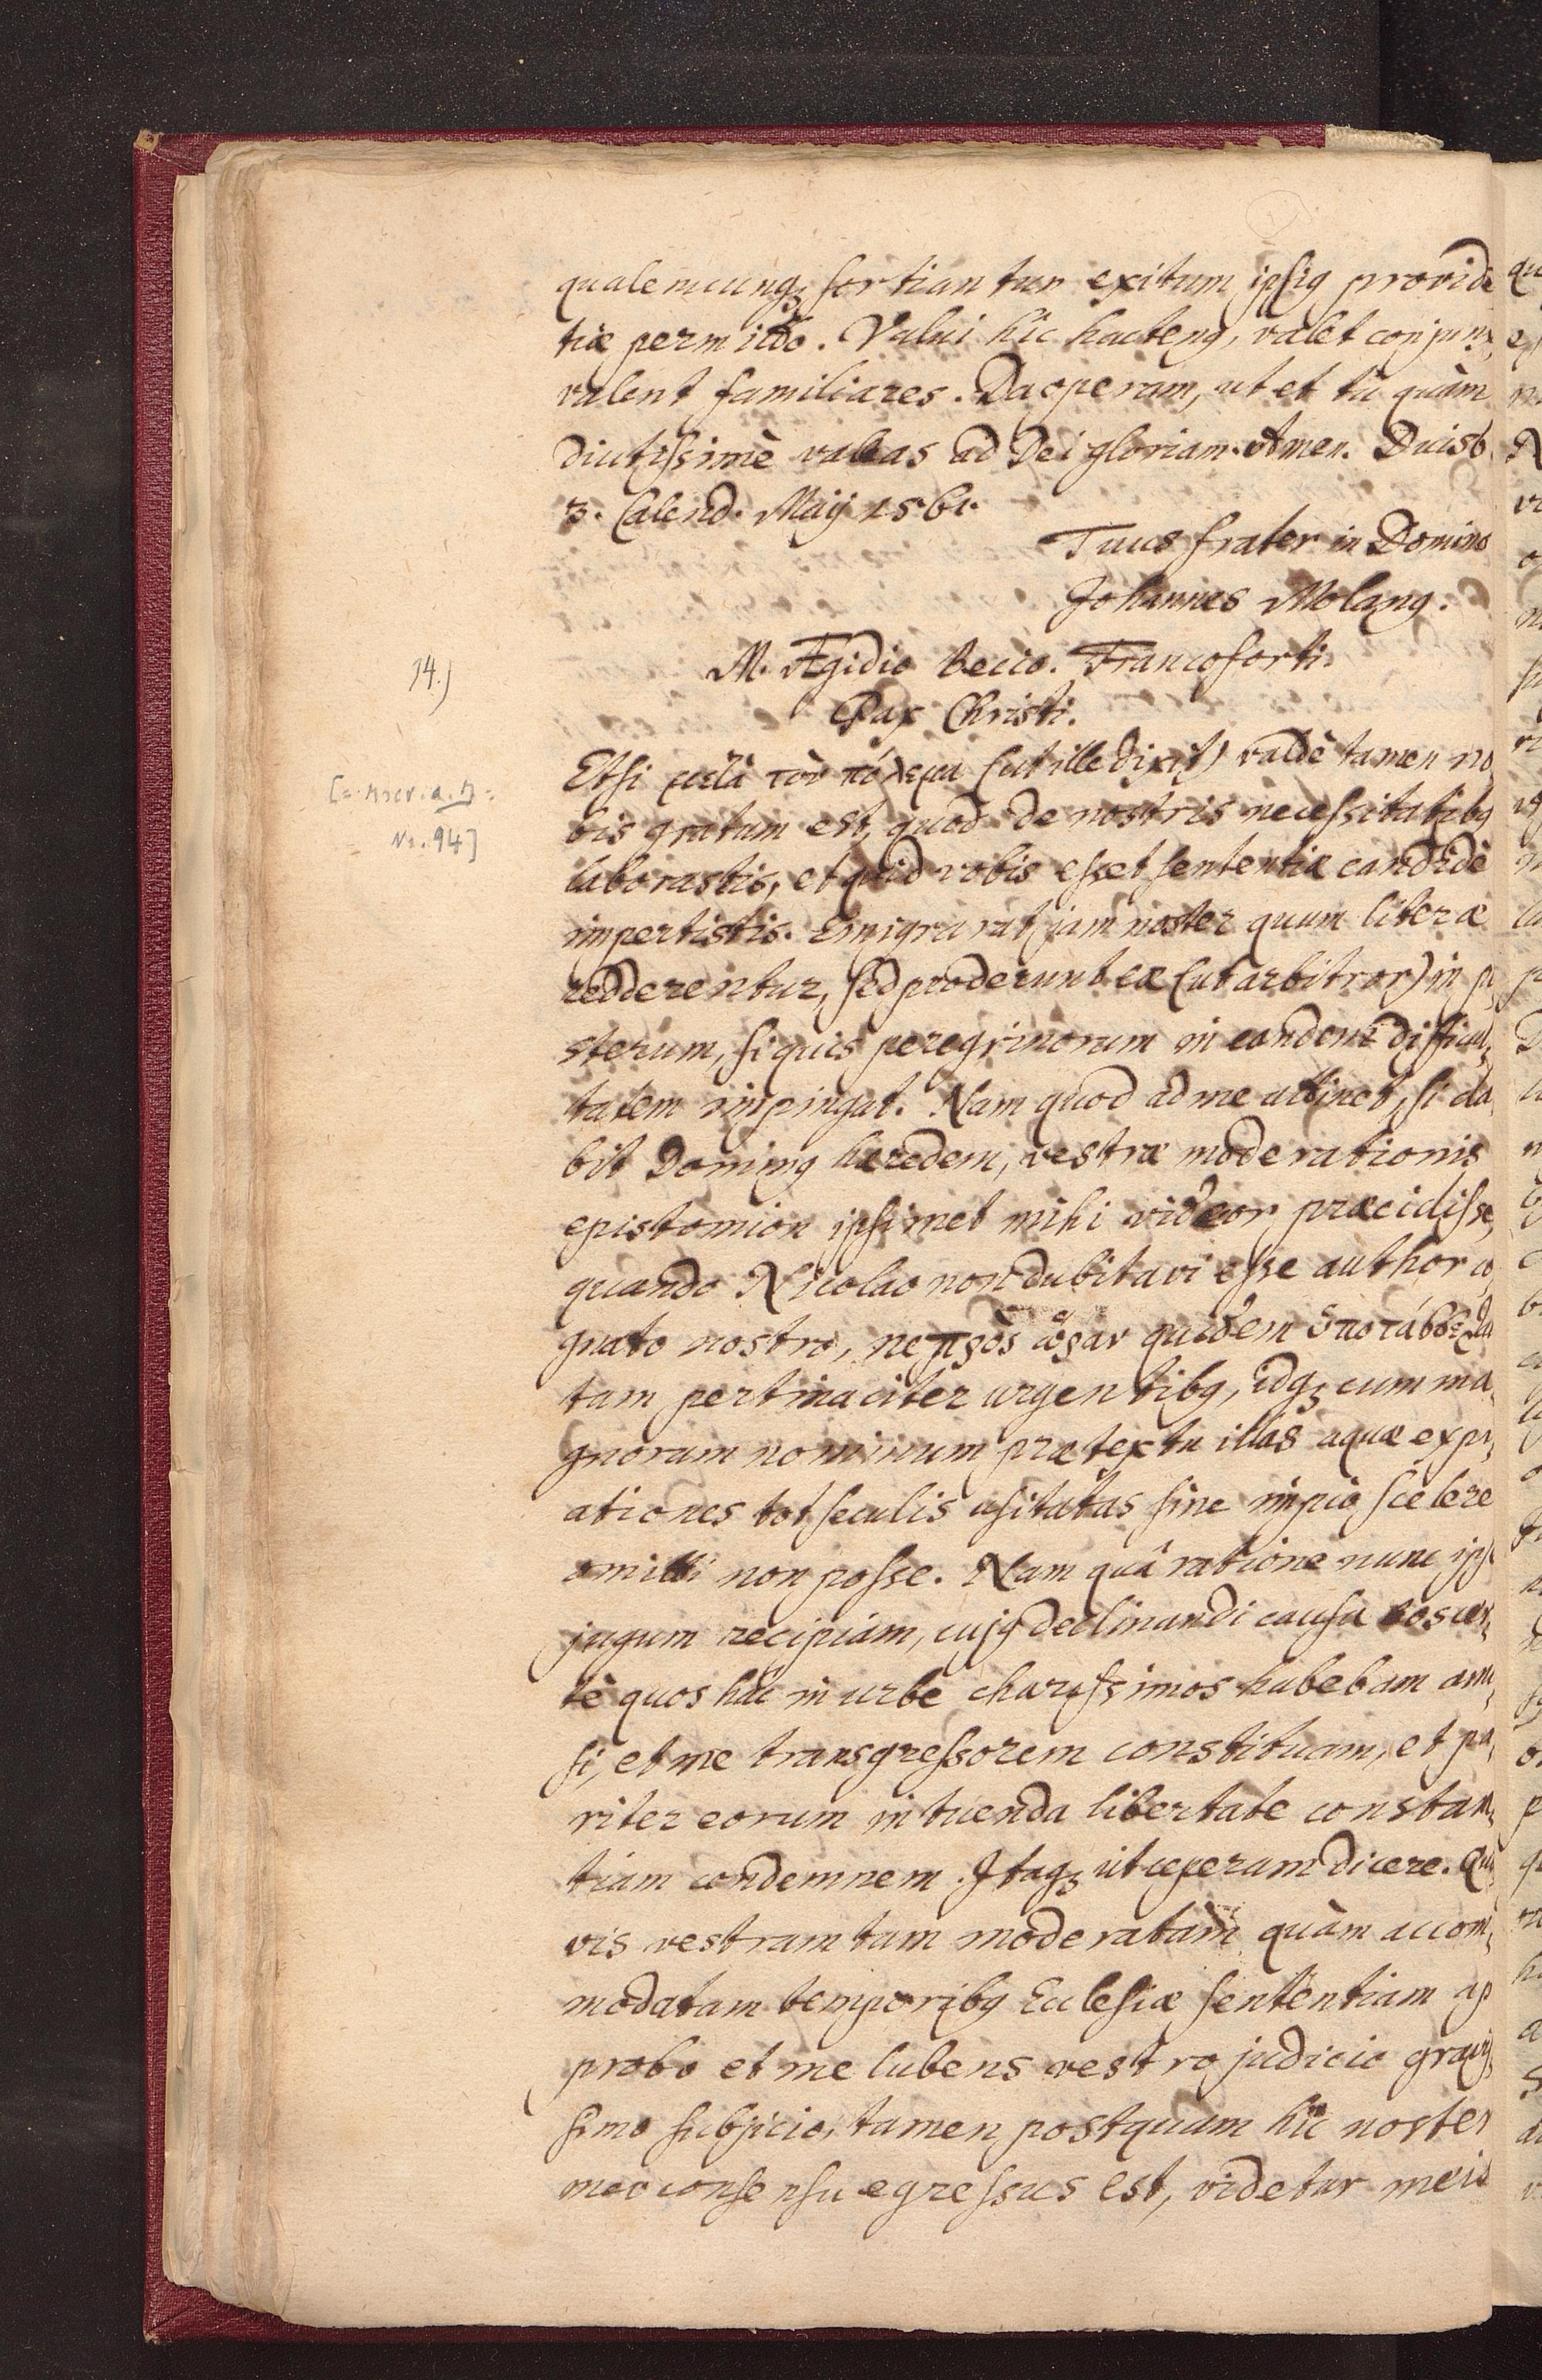 qualemcunqꝫ sortiantur exitum ipsiꝰ provide
tiæ permitto. Valui hîc hactenꝰ, valet conjunx,
valent familiares. Da operam, ut et tu quàm
diutissimè valeas ad Dei gloriam. Amen. Duisb.
3. Calend. Maij 1561.
Tuus frater in Domino
Johannes Molanꝰ.
94.)
M. Ægidio Beccio. Francoforti.
Pax Christi.
Etsi μετὰ τὸν πόλεμον (ut ille dixit) valdè tamen no,
bis gratum est, quod de nostris necessitatibꝰ
Nr. 94]
laborastis, et quid vobis esset sententiæ candidè
impertistis. Emigrarat jam noster quum literæ
redderentur, sed proderunt eæ (ut arbitror) in po
sterum, si quis peregrinorum in eandem difficul,
tatem impingat. Nam quod ad me attinet, si da,
bit Dominꝰ hæredem, vestræ moderationis
epistomion ipsimet mihi videor præcidisse,
quando Nicolao non dubitavi esse author co
gnato nostro, ne πρὸς ὥραν quidem
tam pertinaciter urgentibꝰ, idqꝫ cum ma,
gnorum nominum prætextu illas aquæ expi,
ationes tot seculis usitatas sine impio scelere
omitti non posse. Nam quâ ratione nunc ips
jugum recipiam, cujꝰ declinandi causa eos cer,
tè quos hâc in urbe charissimos habebam ami,
si, et me transgressorem constituam, et pa,
riter eorum in tuenda libertate constan,
tiam condemnem. Itaqꝫ ut ceperam dicere. Quā
vis vestram tam moderatam quàm accom,
modatam temporibꝰ Ecclesiæ sententiam ap
probo et me lubens vestro judicio gravis
simo subjicio, tamen postquam hîc noster
meo consensu egressus est, videtur mei